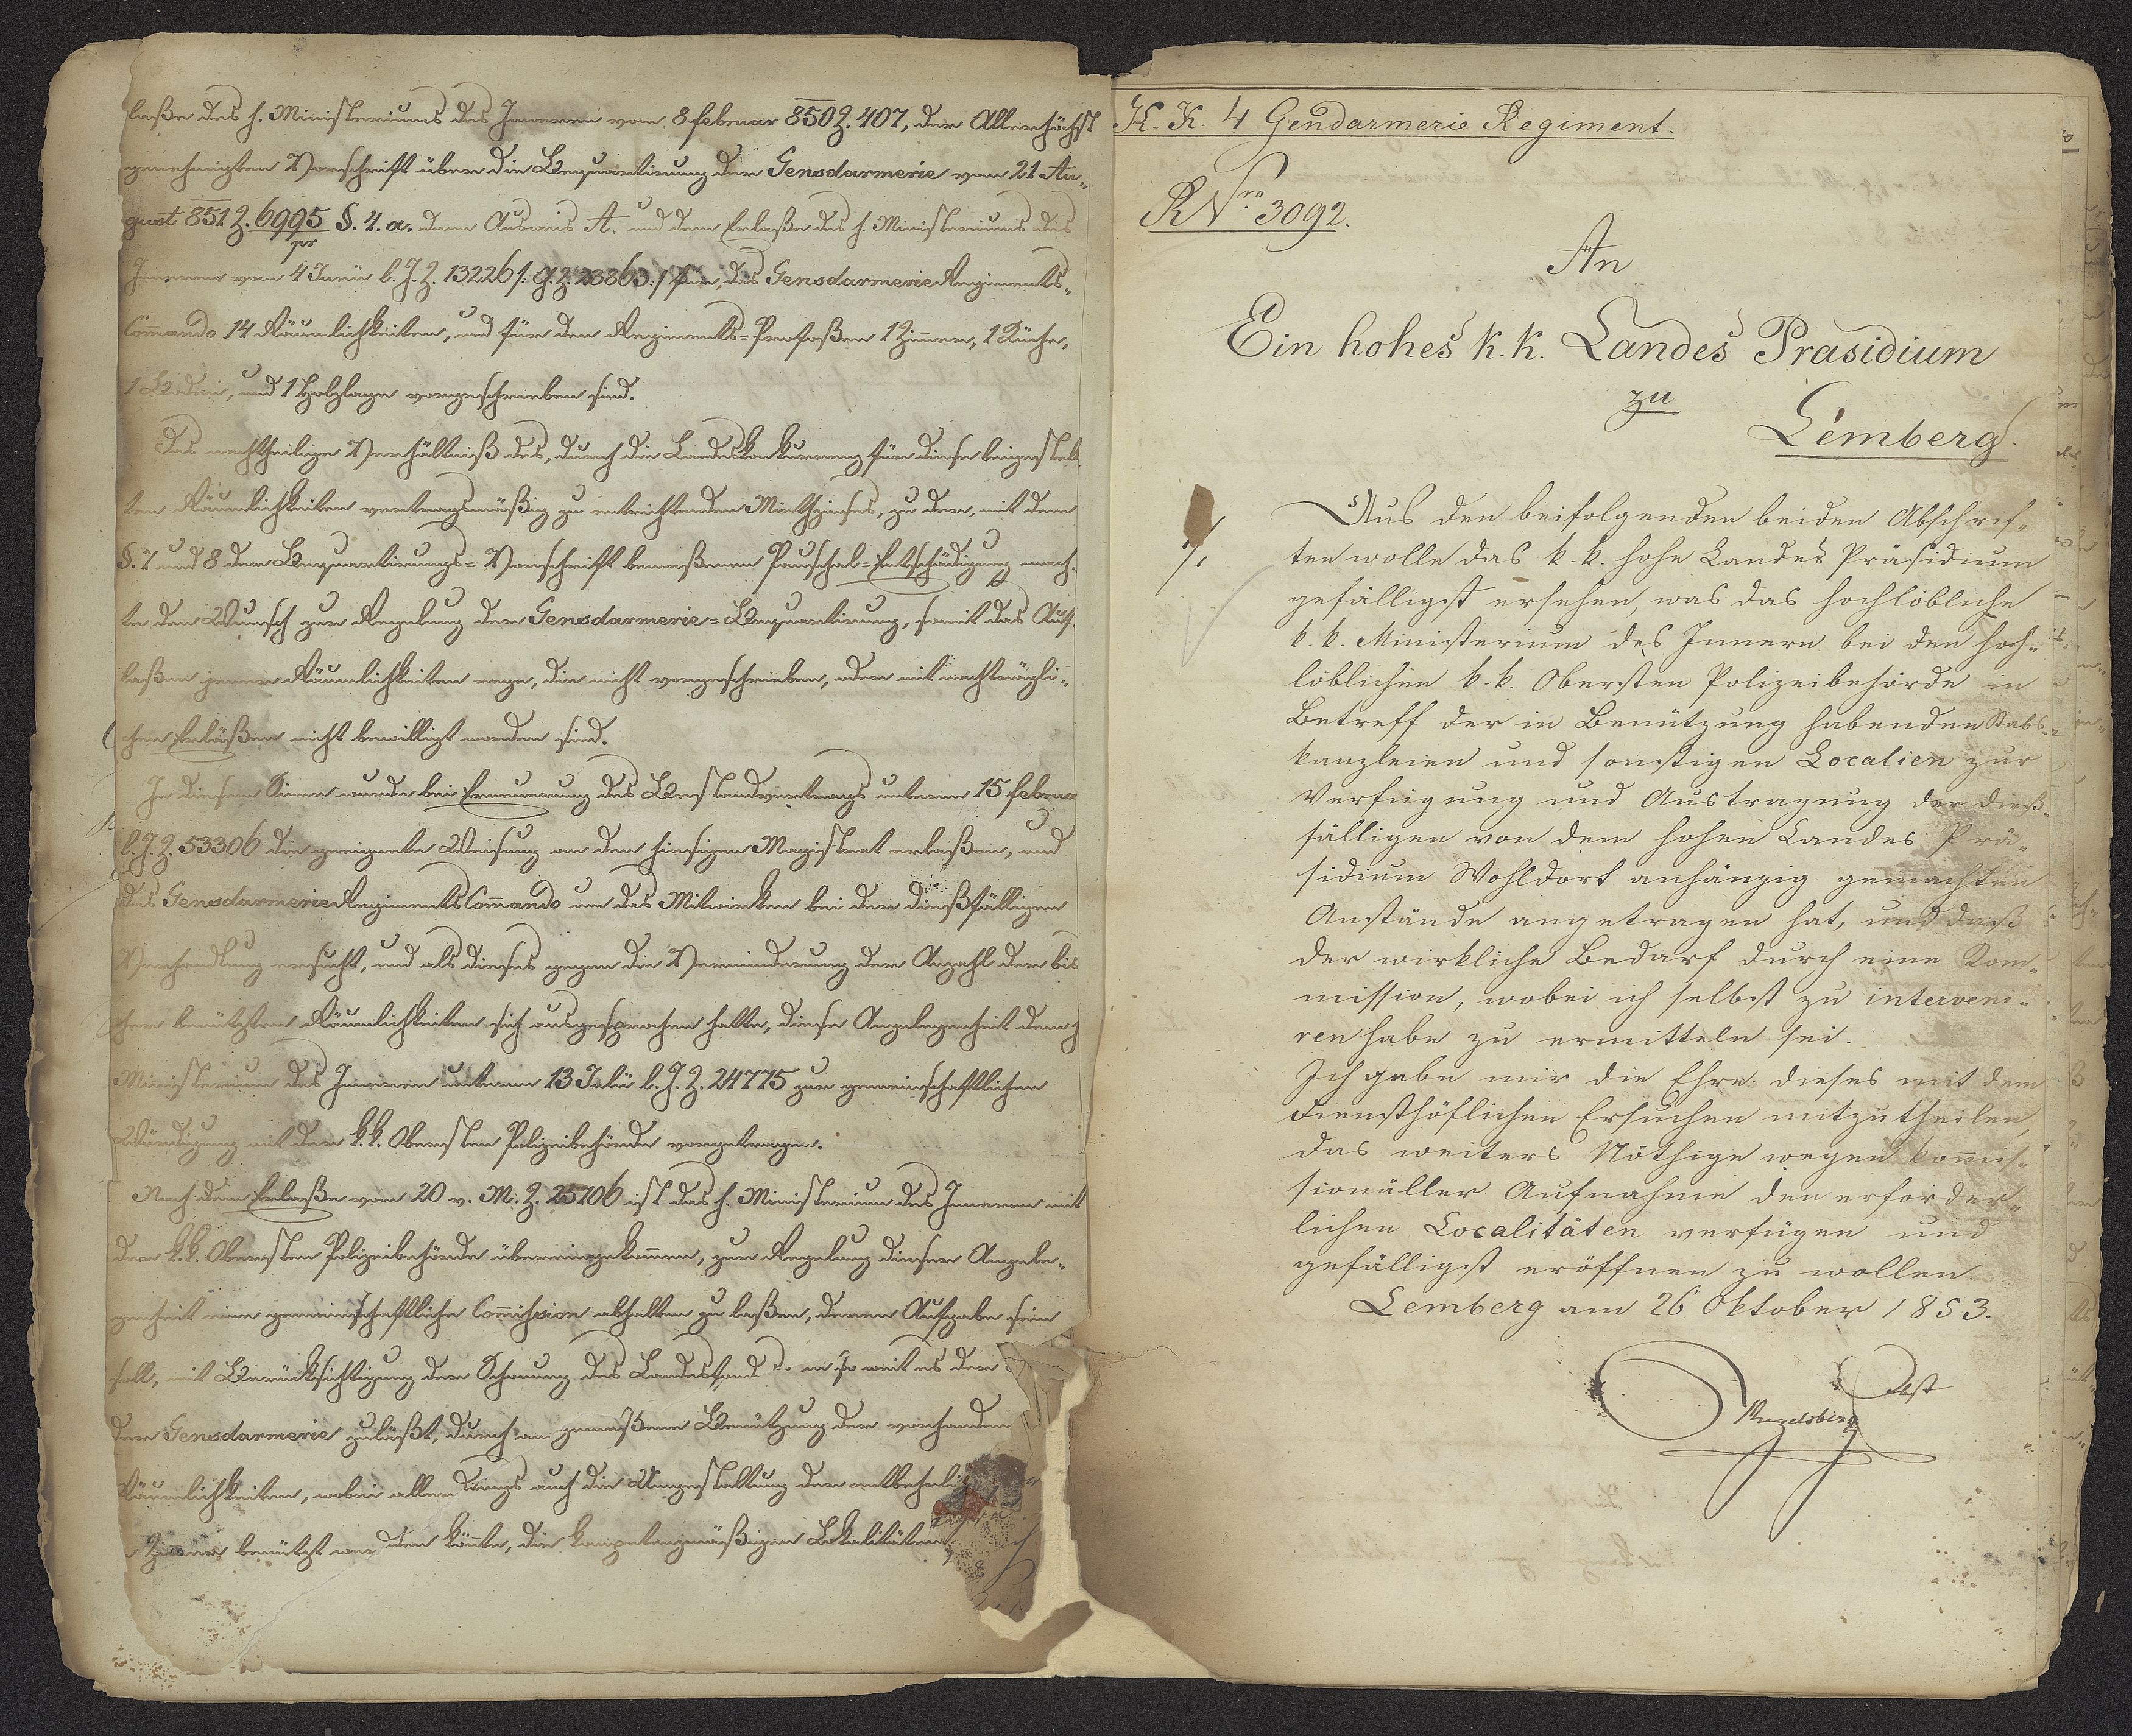 laße des h. Ministeriums des Inneren vom 8 Februar 850 Z. 407, der Allerhöchst
genehmigten Vorschrift über die Bequartirung der Gensdarmerie vom 21 Au„
gust 851 Z. 6995 §. 4. a. dann Ausweis A. und dem Erlaße des h. Ministeriums des
pr
Inneren vom 4 Juni l. J. Z. 13226 /: G. Z. 23863 :/ für das Gensdarmerie Regiments„
Commando 14 Räumlichkeiten, und für den Regiments=Profoßen 1 Zimmer, 1 Küche,
1 Boden, und 1 Holzlage vorgeschrieben sind.
Das nachtheilige Verhältniß des, durch die Landeskonkurrenz für diese beigestell
ten Räumlichkeiten vertragsmäßig zu entrichtenden Miethzinses, zu der, mit dem
§. 7 und 8 der Bequartirungs=Vorschrift bemeßenen Pauschal=Entschädigung mach„
te den Wunsch zur Regelung der Gensdarmerie=Bequartirung, somit das Auf„
laßen jener Räumlichkeiten rege, die nicht vorgeschrieben, oder mit nachträgli„
chen Erläßen nicht bewilligt worden sind.
In diesem Sinne wurde bei Erneuerung des Bestandvertrags unterm 15 Februa
l. J. Z. 53306 die geeignete Weisung an den hiesigen Magistrat erlaßen, und
das Gensdarmerie Regiments Commando um das Mitwirken bei der dießfälligen
Verhandlung ersucht, und als dieses gegen die Verminderung der Anzahl der bis
her benützten Räumlichkeiten sich ausgesprochen hatte, diese Angelegenheit dem h
Ministerium des Inneren unterm 13 Juli l. J. Z. 24775 zur gemeinschaftlichen
Würdigung mit der k. k. Obersten Polizeibehörde vorgetragen.
Nach dem Erlaße vom 20 v. M. Z. 25706 ist das h. Ministerium des Inneren mit
der k. k. Obersten Polizeibehörde übereingekommen, zur Regelung dieser Angele„
genheit eine gemeinschaftliche Commission abhalten zu laßen, deren Aufgabe sein
soll, mit Berücksichtigung der Schonung des Landesfond in so weit es der
der Gensdarmerie zuläßt, durch an gemeßene Benützung der vorhanden
Räumlichkeiten, wobei allerdings auch die Umgestaltung der entbehrli
Zimmer benützt werden könnte, die kompetenzmäßigen Lokalitäten
K. K. 4 Gendarmerie Regiment.
R Nro 3092.
An
Ein hohes k. k. Landes Prasidium
zu
Lemberg.
Aus den beifolgenden beiden Abschrif„
ten wolle das k. k. hohe Landes Präsidium
gefälligst ersehen, was das hochlöbliche
k. k. Ministerium des Innern bei den hoch„
löblichen k. k. Obersten Polizeibehörde in
Betreff der in Benützung habenden Stabs„
kanzleien und sonstigen Localien zur
Verfügung und Austragung der dieß„
fälligen von dem hohen Landes Prä„
sidium Wohldort anhängig gemachten
Anstände angetragen hat, und daß
der wirkliche Bedarf durch eine Kom„
mission, wobei ich selbst zu interveni„
ren habe zu ermitteln sei.
Ich gebe mir die Ehre dieses mit dem
diensthöflichen Ersuchen mitzutheilen,
das weiters Nöthige wegen kommis„
sionäller Aufnahme den erforder„
lichen Localitäten verfügen und
gefälligst eröffnen zu wollen.
Lemberg am 26 Oktober 1853.